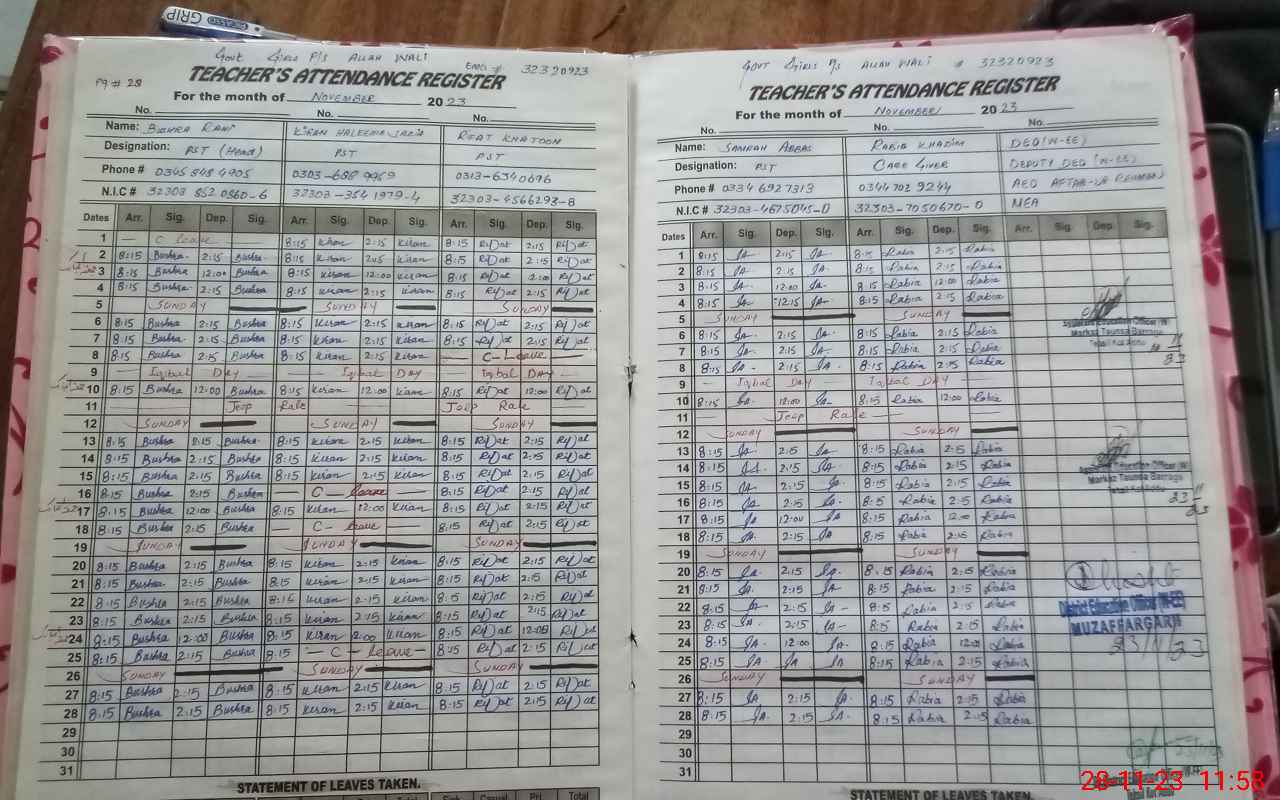 GRIP
Govt Girls P/S ALLAH WALI EMIS # 32320923
Pg # 28
TEACHER'S ATTENDANCE REGISTER
For the month of NOVEMBER 2023
No. No. No.
Name: BUSHRA RANI KIRAN HALEEMA RIFAT KHATOON
Designation: PST (Head) PST PST
Phone # 0345 848 4905 0303-688 9959 0313-6340696
N.I.C # 32303 852 0860-6 32303-354 1979-4 32303-4566293-8
Dates Arr. Sig. Dep. Sig. Arr. Sig. Dep. Sig. Arr. Sig. Dep. Sig.
1 — C leave — 8:15 Kiran 2:15 Kiran 8:15 Rifat 2:15 Rifat
2 8:15 Bushra 2:15 Bushra 8:15 Kiran 2:15 Kiran 8:15 Rifat 2:15 Rifat
3 8:15 Bushra 12:00 Bushra 8:15 Kiran 12:00 Kiran 8:15 Rifat 12:00 Rifat
4 8:15 Bushra 2:15 Bushra 8:15 Kiran 2:15 Kiran 8:15 Rifat 2:15 Rifat
5 SUNDAY SUNDAY SUNDAY
6 8:15 Bushra 2:15 Bushra 8:15 Kiran 2:15 Kiran 8:15 Rifat 2:15 Rifat
7 8:15 Bushra 2:15 Bushra 8:15 Kiran 2:15 Kiran 8:15 Rifat 2:15 Rifat
8 8:15 Bushra 2:15 Bushra 8:15 Kiran 2:15 Kiran — C-Leave —
9 Iqbal DAY Iqbal DAY Iqbal DAY
10 8:15 Bushra 12:00 Bushra 8:15 Kiran 12:00 Kiran 8:15 Rifat 12:00 Rifat
11 Jeep Rale Jeep Rale
12 SUNDAY SUNDAY SUNDAY
13 8:15 Bushra 2:15 Bushra 8:15 Kiran 2:15 Kiran 8:15 Rifat 2:15 Rifat
14 8:15 Bushra 2:15 Bushra 8:15 Kiran 2:15 Kiran 8:15 Rifat 2:15 Rifat
15 8:15 Bushra 2:15 Bushra 8:15 Kiran 2:15 Kiran 8:15 Rifat 2:15 Rifat
16 8:15 Bushra 2:15 Bushra — C - leave — 8:15 Rifat 2:15 Rifat
17 8:15 Bushra 12:00 Bushra 8:15 Kiran 12:00 Kiran 8:15 Rifat 12:00 Rifat
18 8:15 Bushra 2:15 Bushra — C - leave — 8:15 Rifat 2:15 Rifat
19 SUNDAY SUNDAY SUNDAY
20 8:15 Bushra 2:15 Bushra 8:15 Kiran 2:15 Kiran 8:15 Rifat 2:15 Rifat
21 8:15 Bushra 2:15 Bushra 8:15 Kiran 2:15 Kiran 8:15 Rifat 2:15 Rifat
22 8:15 Bushra 2:15 Bushra 8:15 Kiran 2:15 Kiran 8:15 Rifat 2:15 Rifat
23 8:15 Bushra 2:15 Bushra 8:15 Kiran 2:15 Kiran 8:15 Rifat 2:15 Rifat
24 8:15 Bushra 12:00 Bushra 8:15 Kiran 2:00 Kiran 8:15 Rifat 12:00 Rifat
25 8:15 Bushra 2:15 Bushra 8:15 — C - leave — 8:15 Rifat 2:15 Rifat
26 SUNDAY SUNDAY SUNDAY
27 8:15 Bushra 2:15 Bushra 8:15 Kiran 2:15 Kiran 8:15 Rifat 2:15 Rifat
28 8:15 Bushra 2:15 Bushra 8:15 Kiran 2:15 Kiran 8:15 Rifat 2:15 Rifat
29
30
31
STATEMENT OF LEAVES TAKEN.
Total Total
GOVT GIRLS P/S ALLAH WALI # 32320923
TEACHER'S ATTENDANCE REGISTER
For the month of NOVEMBER 2023
No. No. No.
Name: SAMRAH ABBAS RABIA KHADIM DEO(W-EE)
Designation: PST CARE GIVER DEPUTY DEO (W-EE)
Phone # 0334 6927313 0344 702 9244 AEO AFTAB-UR-REHMAN
N.I.C # 32303-4675045-0 32303-7050670-0 MEA
Dates Arr. Sig. Dep. Sig. Arr. Sig. Dep. Sig. Arr. Sig. Dep. Sig.
1 8:15 SA. 2:15 SA. 8:15 Rabia 2:15 Rabia
2 8:15 SA. 2:15 SA. 8:15 Rabia 2:15 Rabia
3 8:15 SA. 12:00 SA. 8:15 Rabia 12:00 Rabia
4 8:15 SA. 12:15 SA. 8:15 Rabia 2:15 Rabia
5 SUNDAY SUNDAY
6 8:15 SA. 2:15 SA. 8:15 Rabia 2:15 Rabia
7 8:15 SA. 2:15 SA. 8:15 Rabia 2:15 Rabia
8 8:15 SA - 2:15 SA. 8:15 Rabia 2:15 Rabia
9 Iqbal DAY Iqbal DAY
10 8:15 SA. 12:00 SA- 8:15 Rabia 12:00 Rabia
11 Jeep Rale
12 SUNDAY SUNDAY
13 8:15 SA. 2:15 SA. 8:15 Rabia 2:15 Rabia
14 8:15 SA. 2:15 SA. 8:15 Rabia 2:15 Rabia
15 8:15 SA. 2:15 SA. 8:15 Rabia 2:15 Rabia
16 8:15 SA. 2:15 SA. 8:15 Rabia 2:15 Rabia
17 8:15 SA 12:00 SA. 8:15 Rabia 12:00 Rabia
18 8:15 SA. 2:15 SA. 8:15 Rabia 2:15 Rabia
19 SUNDAY SUNDAY
20 8:15 SA. 2:15 SA. 8:15 Rabia 2:15 Rabia
21 8:15 SA. 2:15 SA. 8:15 Rabia 2:15 Rabia
22 8:15 SA. 2:15 SA - 8:15 Rabia 2:15 Rabia
23 8:15 SA. 2:15 SA- 8:15 Rabia 2:15 Rabia
24 8:15 SA. 12:00 SA. 8:15 Rabia 12:00 Rabia
25 8:15 SA. SA SA. 8:15 Rabia 2:15 Rabia
26 SUNDAY SUNDAY
27 8:15 SA 2:15 SA. 8:15 Rabia 2:15 Rabia
28 8:15 SA. 2:15 SA. 8:15 Rabia 2:15 Rabia
29
30
31
Assistant Education Officer (W)
Markaz Taunsa Barrage
Tehsil Kot Addu
Assistant Education Officer (W)
Markaz Taunsa Barrage
Tehsil Kot Addu
District Education Officer (W-EE)
MUZAFFARGARH
23/11/23
STATEMENT OF LEAVES TAKEN.
28-11-23 11:58